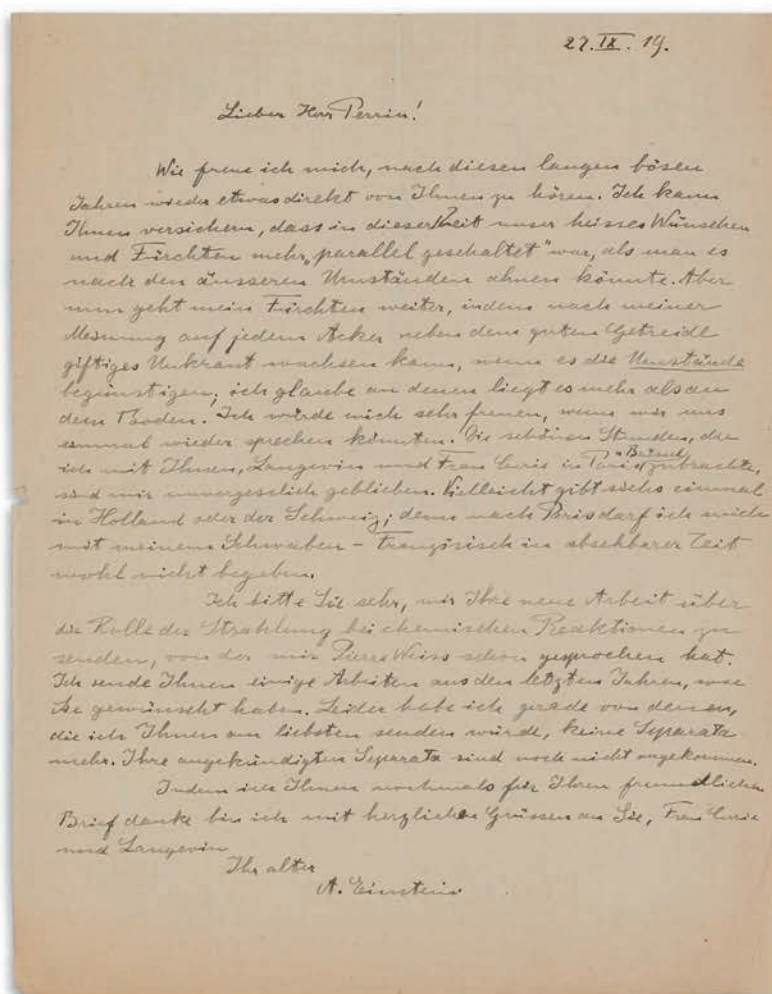 27.IX.19.
Lieber Herr Perrin!
Wie freue ich mich, nach diesen langen bösen
Jahren wieder etwas direkt von Ihnen zu hören. Ich kann
Ihnen versichern, dass in dieser Zeit unser heisses Wünschen
und Fürchten mehr „parallel geschaltet" war, als man es
nach den äusseren Umständen ahnen könnte. Aber
nun geht mein Fürchten weiter, indem nach meiner
Meinung auf jedem Acker neben dem guten Getreide
giftiges Unkraut wachsen kann, wenn es die Umstände
begünstigen; ich glaube an denen liegt es mehr als an
dem Boden. Ich würde mich sehr freuen, wenn wir uns
einmal wieder sprechen könnten. Die schönen Stunden, die
ich mit Ihnen, Langevin und Frau Curie in Paris u. Brüssel zubrachte,
sind mir unvergesslich geblieben. Vielleicht gibt sichs einmal
in Holland oder der Schweiz; denn nach Paris darf ich mich
mit meinem Schwaben-Französisch in absehbarer Zeit
wohl nicht begeben.
Ich bitte Sie sehr, mir Ihre neue Arbeit über
die Rolle der Strahlung bei chemischen Reaktionen zu
senden, von der mir Pierre Weiss schon gesprochen hat.
Ich sende Ihnen einige Arbeiten aus den letzten Jahren, wie
Sie gewünscht haben. Leider habe ich gerade von denen,
die ich Ihnen am liebsten senden würde, keine Separata
mehr. Ihre angekündigten Separata sind noch nicht angekommen.
Indem ich Ihnen nochmals für Ihren freundlichen
Brief danke bin ich mit herzlichen Grüssen an Sie, Frau Curie
und Langevin
Ihr alter
A. Einstein.